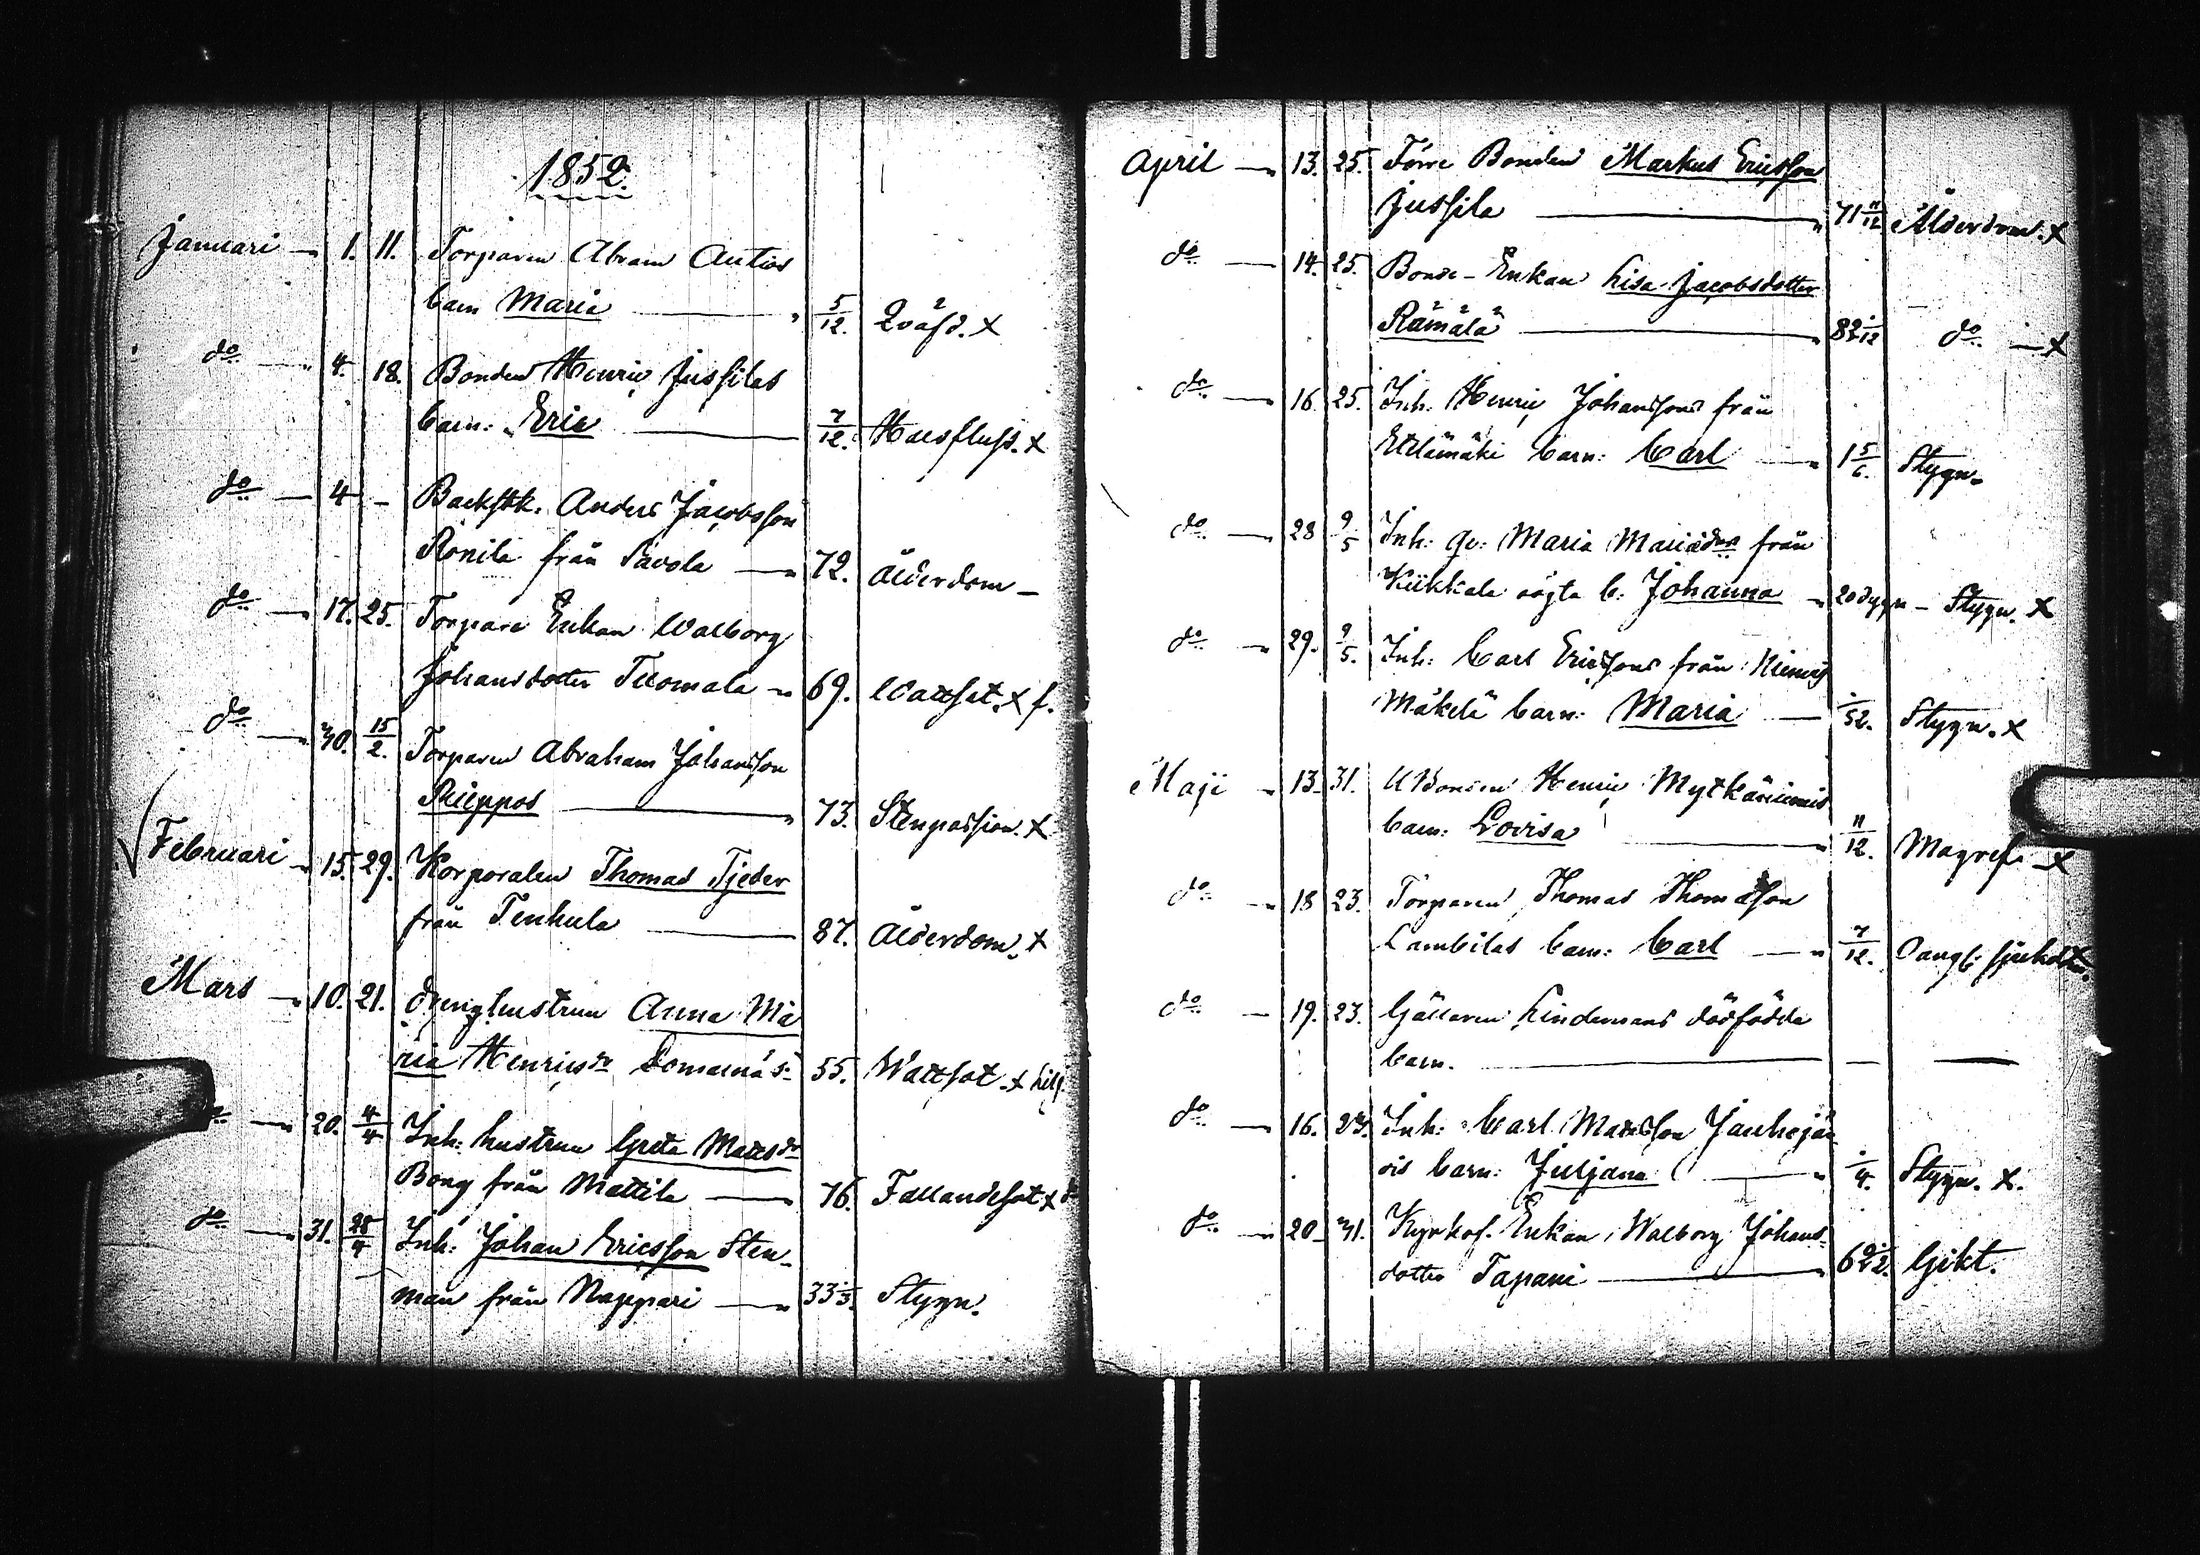 1852.
Januari — 1. 11. Torparen Abram Antias
barn Maria — 5/12. Qväfd. x
do — 4. 18. Bonden Henric Jussilas
barn: Eric — 7/12. Halsfluss. x
do — 4 – Backstk. Anders Jacobsson
Ronila från Pavola — 72. Ålderdom –
do — 17. 25. Torpare Enkan Walborg
Johansdotter Tuomala — 69. Wattsot. x f.
do — 30. 15/2. Torparen Abraham Johansson
Piippos — 73. Stenpassion. x
Februari — 15. 29. Korporalen Thomas Tjeder
från Tenhula — 87. Ålderdom. x
Mars — 10. 21. drenghustrun Anna Ma
ria Henricsdr — 55. Wattsot. x
— 20. 4/4 Inh: hustrun Greta Mattsdr
Borg från Mattila — 76. Fallandesot x
do — 31. 25/4 Inh: Johan Ericsson Sten-
man från Nappari — 33 1/3. Stygn.
April — 13. 25. Förre Bonden Markus Ericsson
Jussila — 71 11/12 Ålderdom. x
do — 14. 25. Bonde-Enkan Lisa Jacobsdotter
Rämälä — 82 1/12 do — x
do — 16. 25. Inh. Henric Johanssons från
Etelämäki barn: Carl — 1 5/6. Stygn.
do — 28 9/5 Inh: qv: Maria Mariædr från
Kiikkala oägta b: Johanna — 20 dygn – Stygn. x
do — 29. 9/5. Inh: Carl Ericssons från Niemis
Mäkelä barn: Maria — 1/52. Stygn. x
Maji — 13. 31. Bonden Henric Mytkäniemis
barn: Lovisa — 11/12. Magref. x
do — 18 23. Torparen Thomas Thomasson
Lambilas barn: Carl — 7/12. Oangf: sjukd
do — 19. 23. Gällaren Lindemans dödfödda
barn. — — —
do — 16. 23. Inh: Carl Mattsson Jauhojär-
vis barn: Juljana — 1/4. Stygn. x.
do — 20. 31. Kyrkof. Enkan Walborg Johans-
dotter Tapani — Gikt.